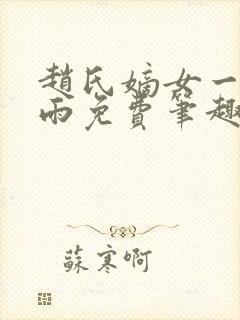 趙氏嫡女一
雨免費筆趣
蘇寒啊